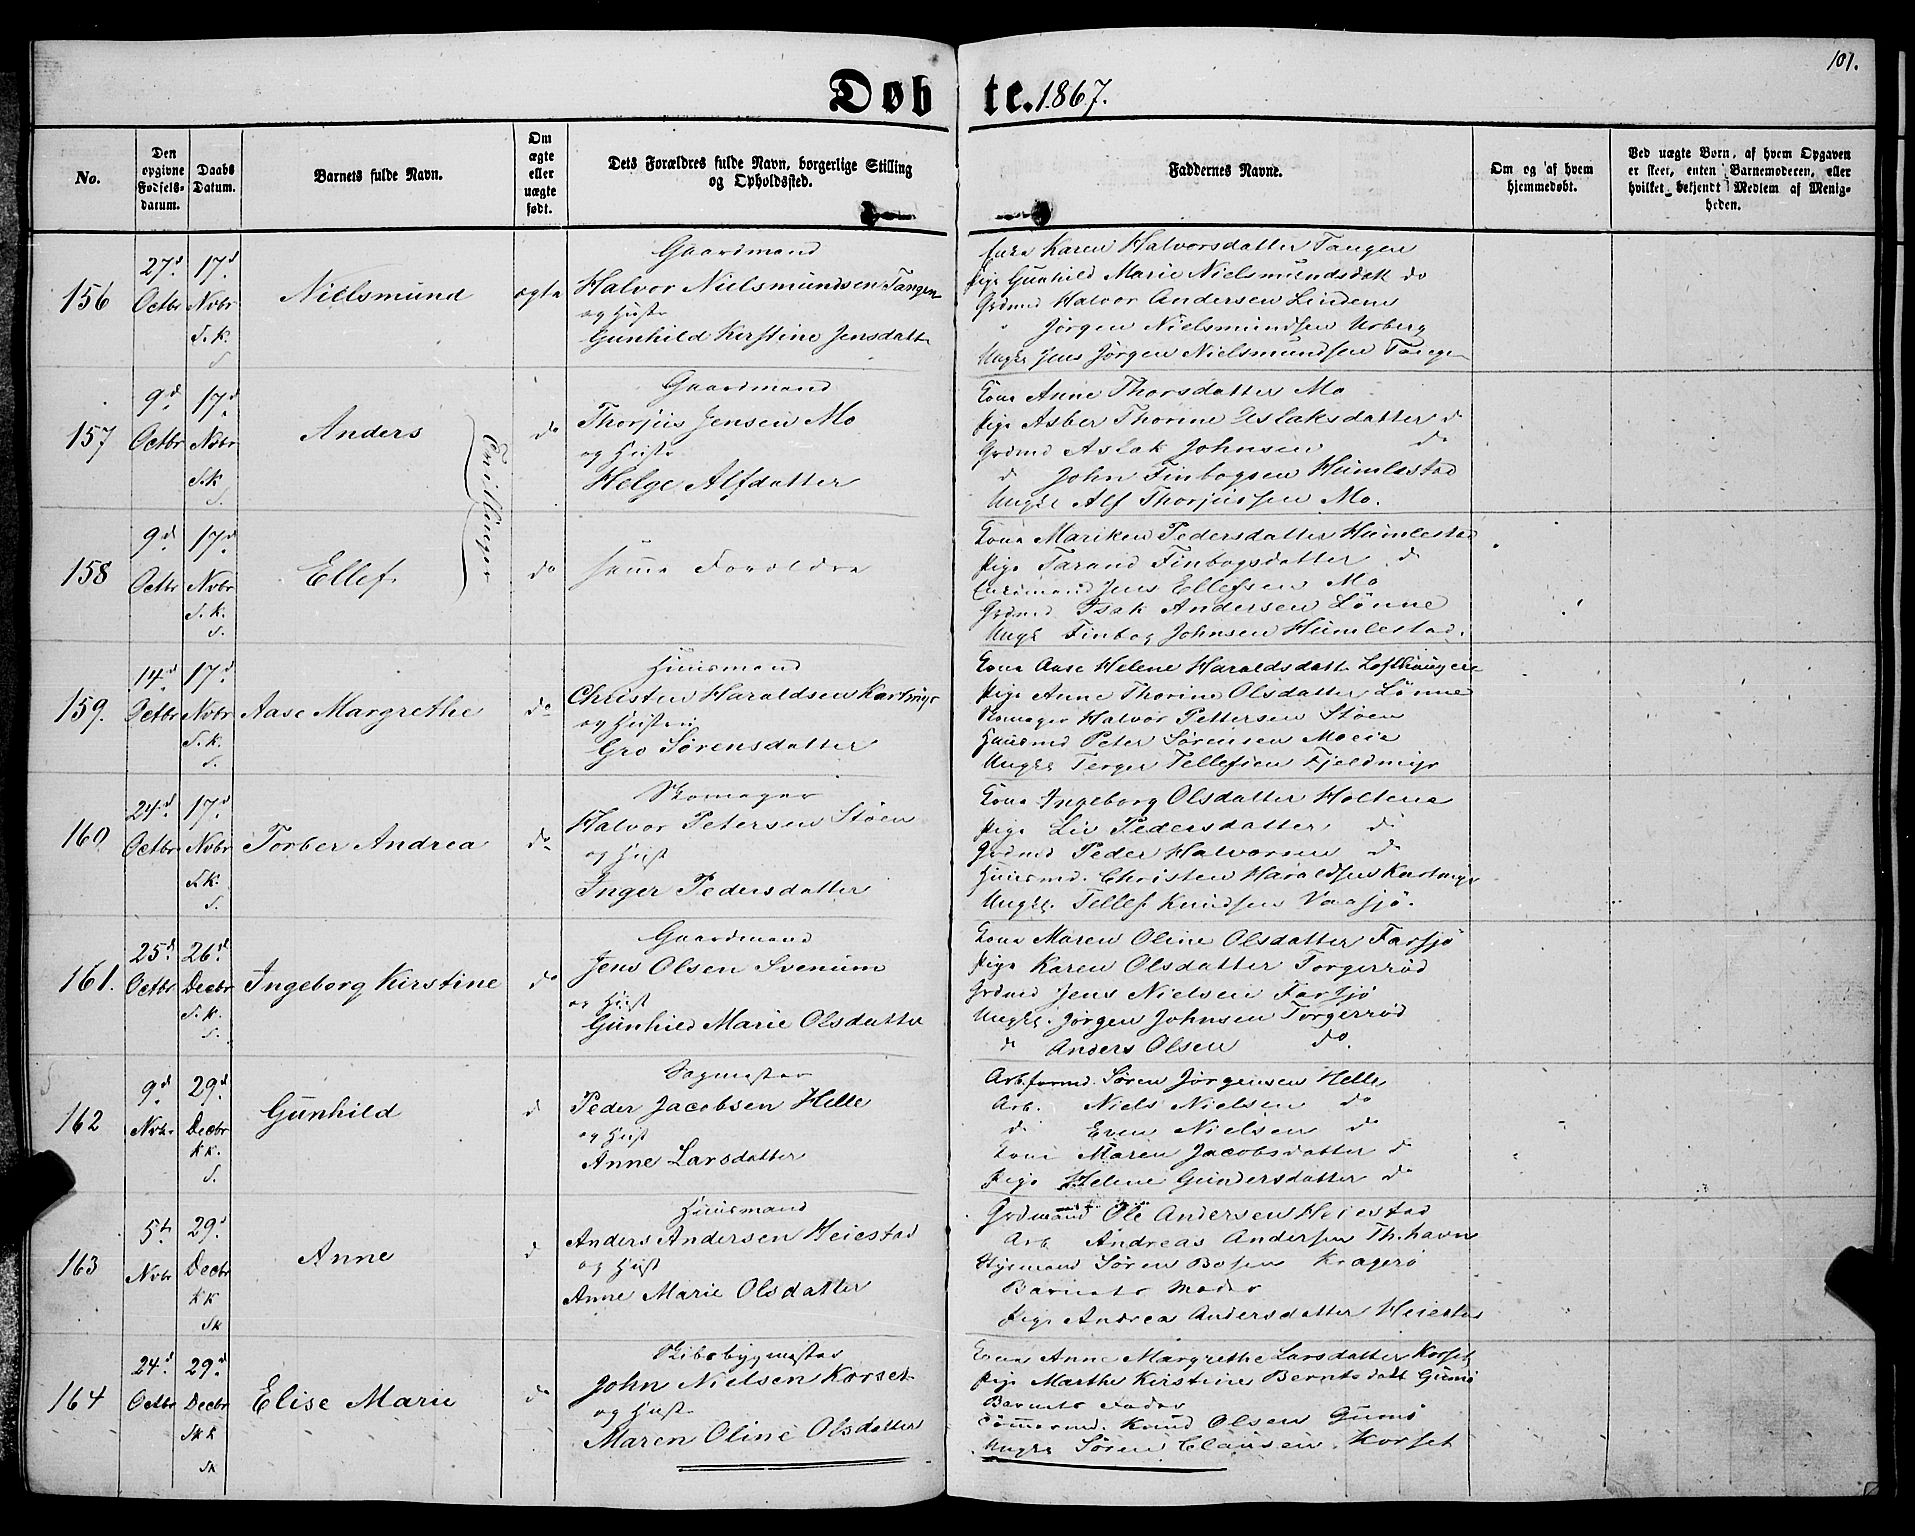 101.
Døbte. 1867.
No.
Den opgivne Fødsels-datum.
Daabs Datum.
Barnets fulde Navn.
Om ægte eller uægte født.
Dets Forældres fulde Navn, borgerlige Stilling og Opholdssted.
Faddernes Navne.
Om og af hvem hjemmedøbt.
Ved uægte Børn, af hvem Opgaven er skeet, enten Barnemoderen, eller hvilket bekjendt Medlem af Menigheden.
156
27d Octbr
17d Nvbr S.k. S
Nielsmund
ægte
Gaardmand
Halvor Nielsmundsen Tangen
og Hustr
Gunhild Kirstine Jensdatt
Enke Karen Halvorsdatter Tangen
Pige Gunhild Marie Nielsmundsdatt do
Grdmd Halvor Andersen Lindene
" Jørgen Nielsmundsen Urberg
Ungkl Jens Jørgen Nielsmundsen Tange
157
9d Octbr
17d Nvbr S.k S.
Anders
Tvillinger
do
Gaardmand
Thorjus Jensen Mo
og Hustr
Helge Alfdatter
Kone Anne Thorsdatter Mo
Pige Asber Thorine Aslaksdatter d
Grdmd Aslak Johnsen do
d John Finbogsen Humlestad
Ungkl Alf Thorjussen Mo.
158
9d Octbr
17d Nvbr S.k. S.
Ellef
do
samme Forældre
Kone Mariken Pedersdatter Humlestad
Pige Tarand Finbogsdatter d
Jens Ellefsen Mo
Grdmd Isak Andersen Lønne
Ungk Finbog Johnsen Humlestad.
159.
14d Octbr
17d Nvbr S.k. S.
Aase Margrethe
do
Huusmand
Christen Haraldsen Kartmyr
og Hustru
Gro Sørensdatter
Kone Aase Helene Haraldsdatt Lofthaugen
Pige Anne Thorine Olsdatter Lønne
Skomager Halvor Pettersen Støen
Huusmd Peter Sørensen Moeie
Ungkl Terger Tellefsen Fjeldmyr
160
24d Octbr
17d Nvbr S.k. S.
Torber Andrea
do
Skomager
Halvor Petersen Støen
og Hust
Inger Pedersdatter
Kone Ingeborg Olsdatter Holtene
Pige Liv Pedersdatter d
Grdmd Peder Halvorsen d
Huusmd. Christen Haraldsen Kartmyr
Ungkl. Tellef Knudsen Vaasjø.
161.
25d Octbr
26d Decbr S.k. S.
Ingeborg Kirstine
do
Gaardmand
Jens Olsen Svenum
og Hust
Gunhild Marie Olsdatter
Kone Maren Oline Olsdatter Farsjø
Pige Karen Olsdatter Torgerrød
Grdmd Jens Nielsen Farsjø
Ungkl. Jørgen Johnsen Torgerrød
d Anders Olsen do.
162
9d Nvbr
29d Decbr KK. S.
Gunhild
d
Sagmester
Peder Jacobsen Helle
og Hust
Anne Larsdatter
Arb.formd. Søren Jørgensen Helle
Arb. Niels Nielsen do
d Even Nielsen do
Kone Maren Jacobsdatter d
Pige Helene Gundersdatter do
163
5t Nvbr
29d Decbr KK Sk
Anne
d
Huusmand
Anders Andersen Heiestad
og Hust
Anne Marie Olsdatter
Grdmand Ole Andersen Heiestad
Arb Andreas Andersen Th.havn
Styrmand Søren Bosen Kragerø
Barnets Moder
Pige Andrea Andersdatter Heiestad
164
24d Octbr
29d Decbr Skk Sk
Elise Marie
do
Skibsbygmester
John Nielsen Korset
og Hust
Maren Oline Olsdatter
Kone Anne Margrethe Larsdatter Korset
Pige Marthe Kirstine Berntsdatt Gumø
Barnets Fader
Tømmermd. Knud Olsen Gumø
Ungkl Søren Clausen Korset